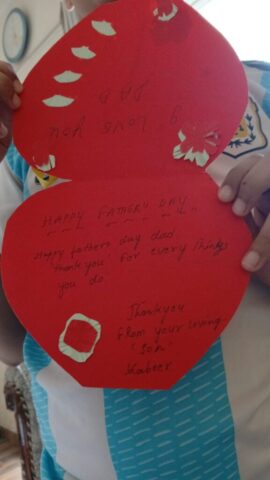 I love you
DAD
HAPPY FATHER'S DAY
Happy fathers day dad
'Thank you' for every things
you do
Thankyou
from your loving
'Son'